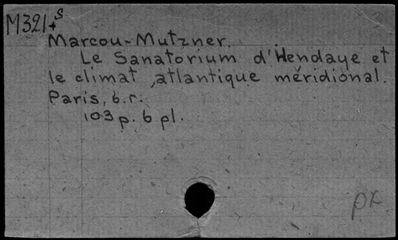 M321+s
Marcou-Mutzner.
Le Sanatorium d'Hendaye et
le climat atlantique méridional.
Paris, s.r.
103 p. 6 pl.
px